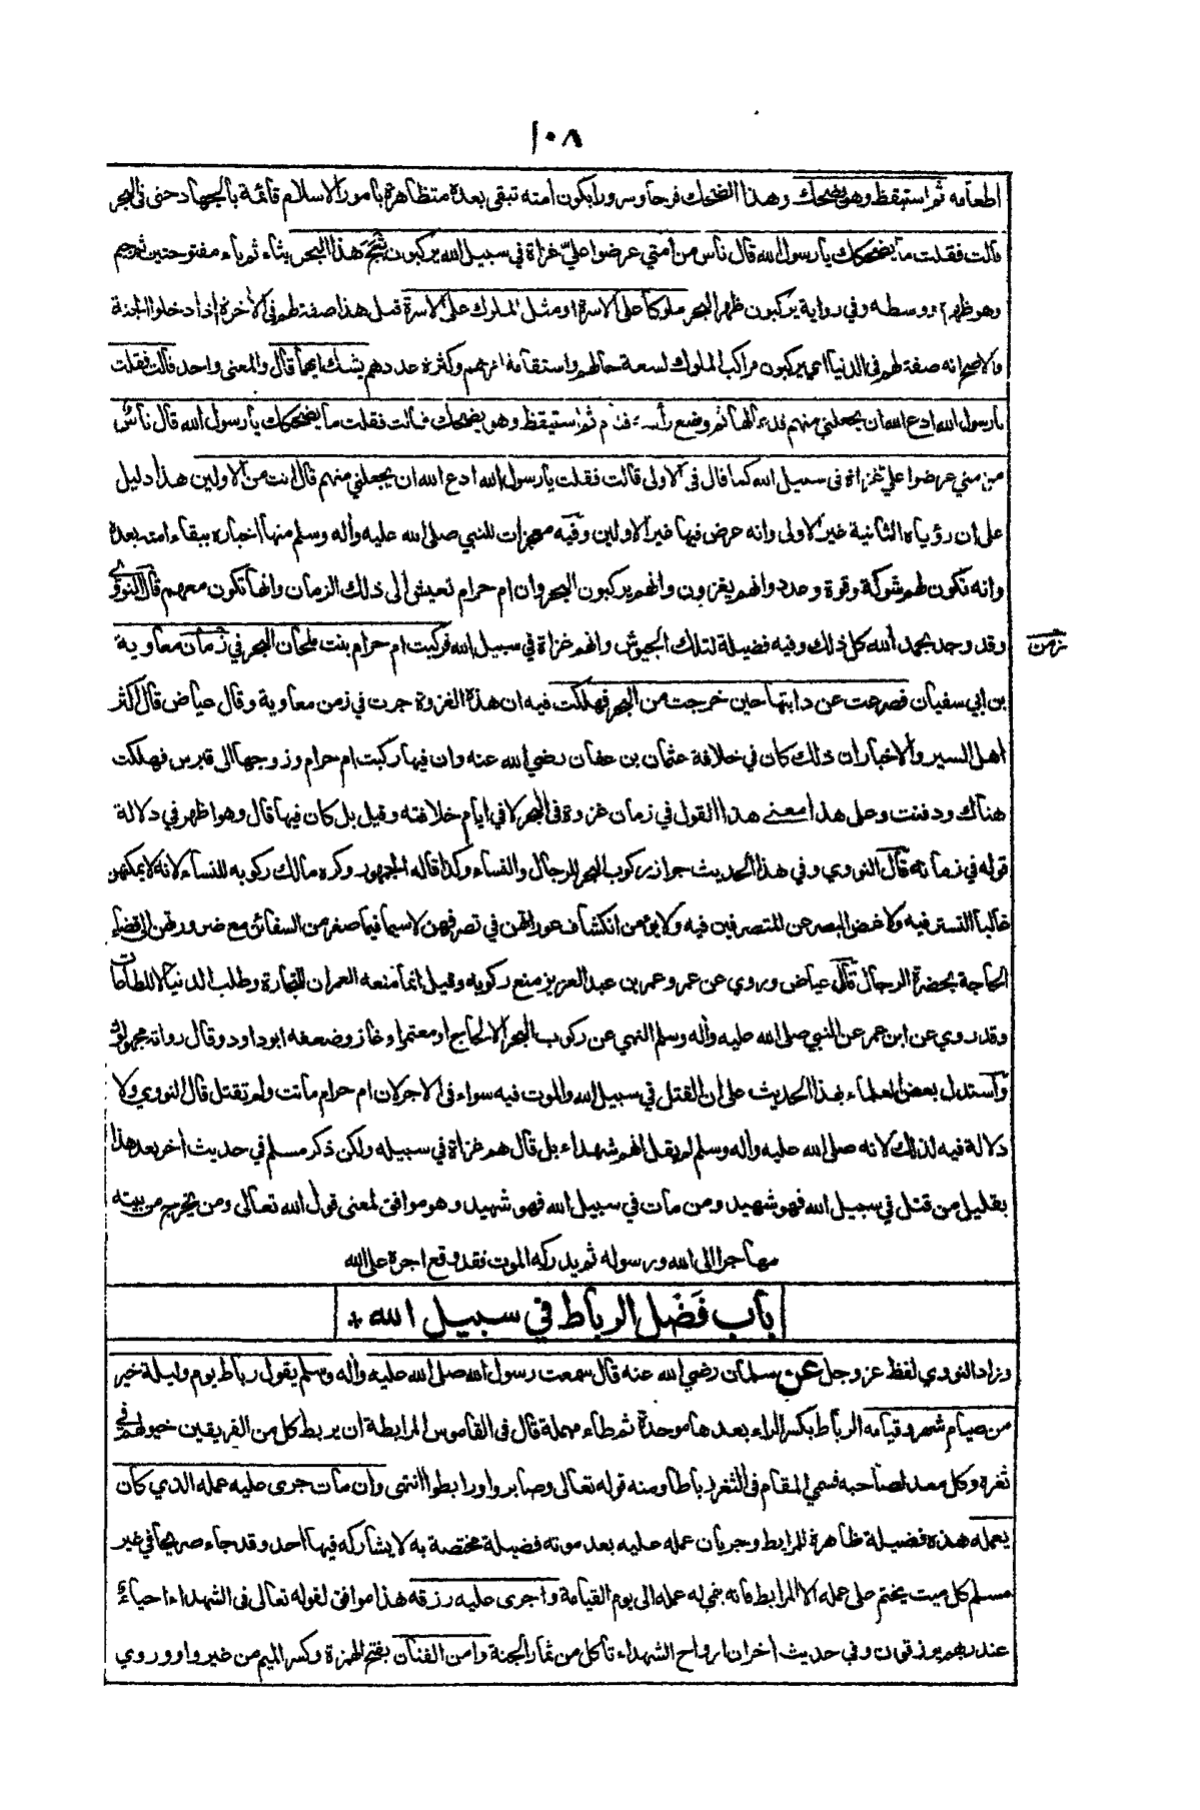 ١٠٨
اطعامه ثم استيقظ وهو يضحك وهذا الضحك فرحا وسرورا بكون امته تبقى بعده متظاهرة بامور الاسلام قائمة بالجهاد حتى في البحر
قالت فقلت ما يضحكك يا رسول الله قال ناس من امتي عرضوا عليّ غزاة في سبيل الله يركبون ثَبَجَ هذا البحر بثاء ثم باء مفتوحتين ثم جيم
وهو ظهره ووسطه وفي رواية يركبون ظهر البحر ملوكا على الاسرة او مثل الملوك على الاسرة قيل هذا صفة لهم في الآخرة اذا دخلوا الجنة
والاصح انه صفة لهم في الدنيا اي يركبون مراكب الملوك لسعة حالهم واستقامة امرهم وكثرة عددهم يشك ايهما قال والمعنى واحد قالت فقلت
يا رسول الله ادع الله ان يجعلني منهم فدعا لها ثم وضع رأسه فنام ثم استيقظ وهو يضحك قالت فقلت ما يضحكك يا رسول الله قال ناس
من امتي عرضوا علي غزاة في سبيل الله كما قال في الاولى قالت فقلت يا رسول الله ادع الله ان يجعلني منهم قال انت من الاولين هذا دليل
على ان رؤياه الثانية غير الاولى وانه عرض فيها غير الاولين وفيه معجزات للنبي صلى الله عليه واله وسلم منها اخباره ببقاء امته بعده
وانه تكون لهم شوكة وقوة وعدد وانهم يغزون وانهم يركبون البحر وان ام حرام تعيش الى ذلك الزمان وانها تكون معهم قال النووي
وقد وجد بحمد الله كل ذلك وفيه فضيلة لتلك الجيوش وانهم غزاة في سبيل الله فركبت ام حرام بنت ملحان البحر في زمان معاوية
زمن
بن ابي سفيان فصرعت عن دابتها حين خرجت من البحر فهلكت فيه ان هذه الغزوة جرت في زمن معاوية وقال عياض قال اكثر
اهل السير والاخبار ان ذلك كان في خلافة عثمان بن عفان رضي الله عنه وان فيها ركبت ام حرام وزوجها الى قبرس فهلكت
هناك ودفنت وعلى هذا معنى هذا القول في زمان غزوة في البحر لا في ايام خلافته وقيل بل كان فيها قال وهو اظهر في دلالة
قوله في زمانه قال النووي وفي هذا الحديث جواز ركوب البحر للرجال والنساء وكذا قاله الجمهور وكره مالك ركوبه للنساء لانه لا يمكنهن
غالبا التستر فيه ولا غض البصر عن المتصرفين فيه ولا يؤمن انكشاف عوراتهن في تصرفهن لاسيما فيما صغر من السفائن مع ضرورتهن الى قضاء
الحاجة بحضرة الرجال قال عياض وروي عن عمر وعمر بن عبد العزيز منع ركوبه وقيل انما منعه العمران للتجارة وطلب الدنيا لا للطاعات
وقد روي عن ابن عمر عن النبي صلى الله عليه واله وسلم النهي عن ركوب البحر الا لحاج او معتمر او غاز وضعفه ابو داود وقال رواته مجهولون
واستدل بعض العلماء بهذا الحديث على ان القتل في سبيل الله والموت فيه سواء في الاجر لان ام حرام ماتت ولم تقتل قال النووي ولا
دلالة فيه لذلك لانه صلى الله عليه واله وسلم لم يقل انهم شهداء بل قال هم غزاة في سبيله ولكن ذكر مسلم في حديث اخر بعد هذا
بقليل من قتل في سبيل الله فهو شهيد ومن مات في سبيل الله فهو شهيد وهو موافق لمعنى قول الله تعالى ومن يخرج من بيته
مهاجرا الى الله ورسوله ثم يدركه الموت فقد وقع اجره على الله
باب فَضْل الرباط في سبيل الله
وزاد النووي لفظ عز وجل عن سلمان رضي الله عنه قال سمعت رسول الله صلى الله عليه واله وسلم يقول رباط يوم وليلة خير
من صيام شهر وقيامه الرباط بكسر الراء بعدها موحدة ثم طاء مهملة قال في القاموس المرابطة ان يربط كل من الفريقين خيولهم في
ثغره وكل معد لصاحبه فسمي المقام في الثغر رباطا ومنه قوله تعالى وصابروا ورابطوا انتهى وان مات جرى عليه عمله الذي كان
يعمله هذه فضيلة ظاهرة للمرابط وجريان عمله عليه بعد موته فضيلة مختصة به لا يشاركه فيها احد وقد جاء صريحا في غير
مسلم كل ميت يختم على عمله الا المرابط فانه ينمي له عمله الى يوم القيامة واجرى عليه رزقه هذا موافق لقوله تعالى في الشهداء احياء
عند ربهم يرزقون وفي حديث اخر ان ارواح الشهداء تاكل من ثمار الجنة وامن الفتان بفتح الهمزة وكسر الميم من غير واو وروي